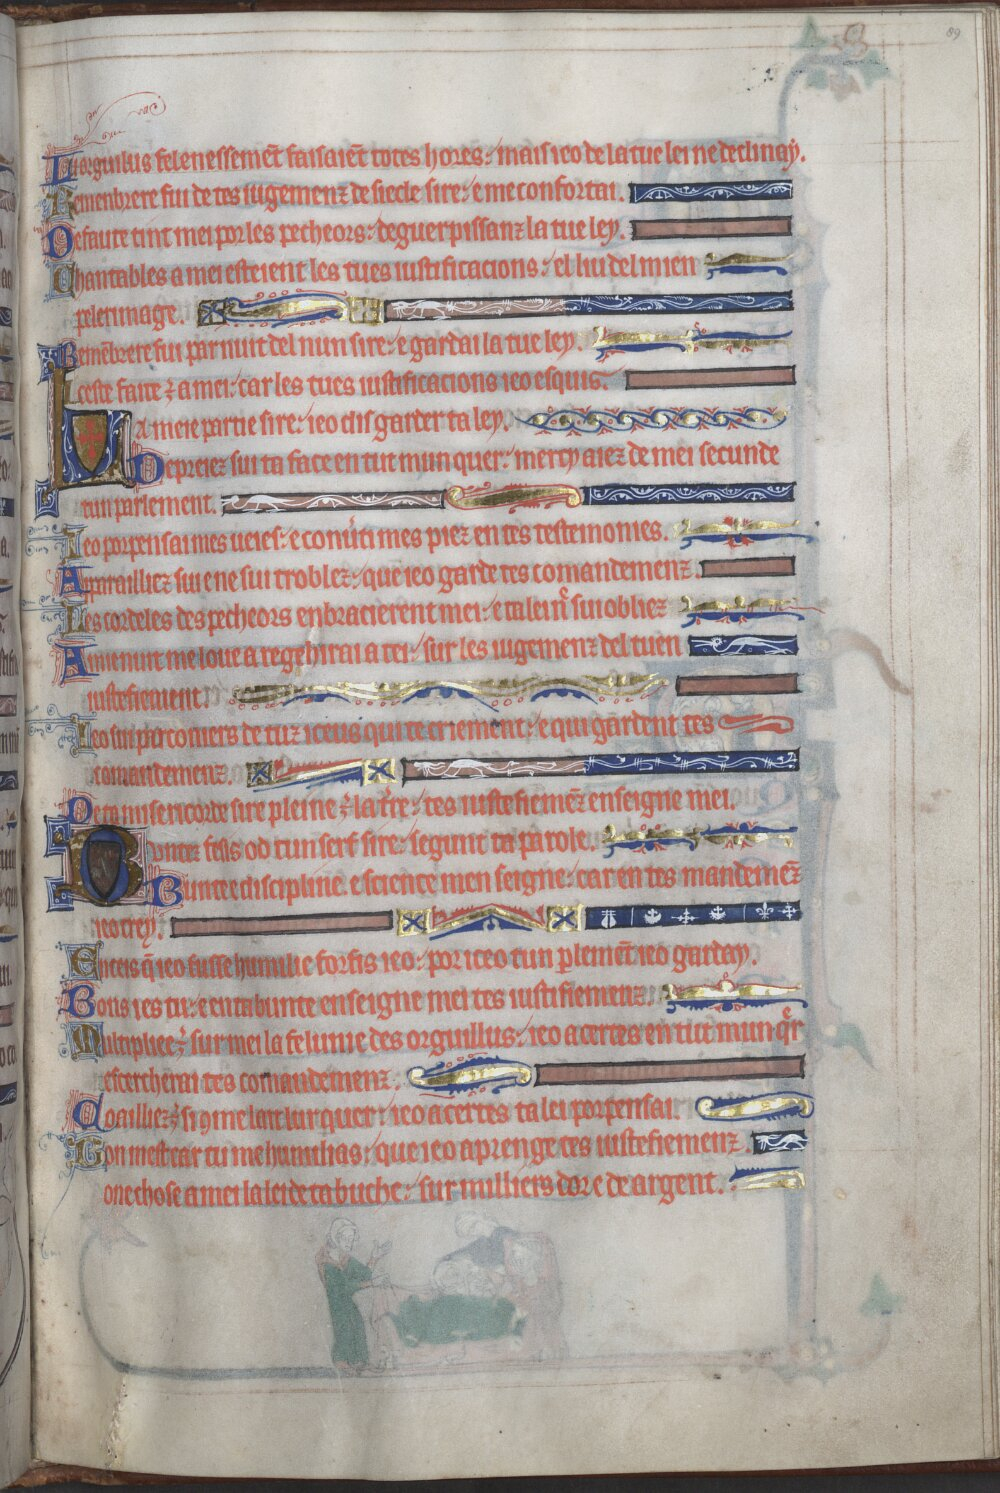 89
Li orguilus felenessemēt faisaiēt totes hores: mais ieo de la tue lei ne declinay.
Remenbrere fui de tes iugemenz de siecle sire: e me confortai.
Defaute tint mei por les pecheors: deguerpissanz la tue ley.
Chantables a mei esteient les tues iustificacions: el liu del mien
pelerinage.
Remēbrere fui par nuit del nun sire: e gardai la tue ley.
Ceste faite ē a mei: car les tues iustificacions ieo esquis.
La meie partie sire: ieo dis garder ta ley.
Depreiez sui ta face en tut mun quer: mercy aiez de mei secunde
tun parlement.
Ieo porpensai mes veies: e conūti mes piez en tes testemonies.
Apparailliez sui e ne sui troblez: que ieo garde tes comandemenz.
Les cordeles des pecheors enbracierent mei: e ta lei n̄ sui obliez
A mienuit me loue a regehirai a tei: sur les iugemenz del tuen
iustefiement.
Ieo sui parconiers de tuz iceus qui te criement: e qui gardent tes
comandemenz.
De ta misericorde sire pleine ē la t̄re: tes iustefiemēz enseigne mei.
Bunte fesis od tun serf sire: segunt ta parole.
Bunte e discipline e science men seigne: car en tes mandemēz
ieo crey.
Enceis q̄ ieo fusse humilie forfis ieo: por iceo tun p̄lemēt ieo garday.
Bons ies tu: e en ta bunte enseigne mei tes iustifiemenz.
Multipliee ē sur mei la felunie des orguillus: ieo a certes en tut mun q̄r
esercherai tes comandemenz.
Coailliez ē si cume lait lur quer: ieo a certes ta lei porpensai.
Bon mestear tu me humilias: que ieo aprenge tes iustefiemenz.
one chose a mei la lei de ta buche: sur milliers dor e de argent.